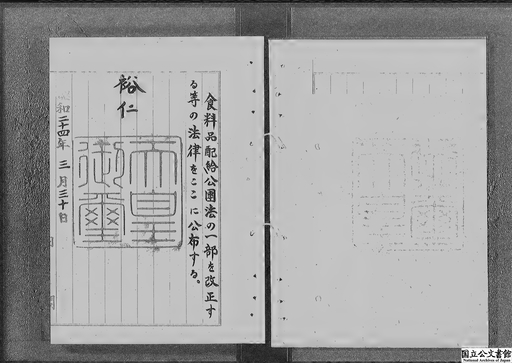 食料品配給公團法の一部を改正す
る等の法律をここに公布する。
裕仁
天皇
御璽
昭和二十四年三月三十日
国立公文書館
National Archives of Japan